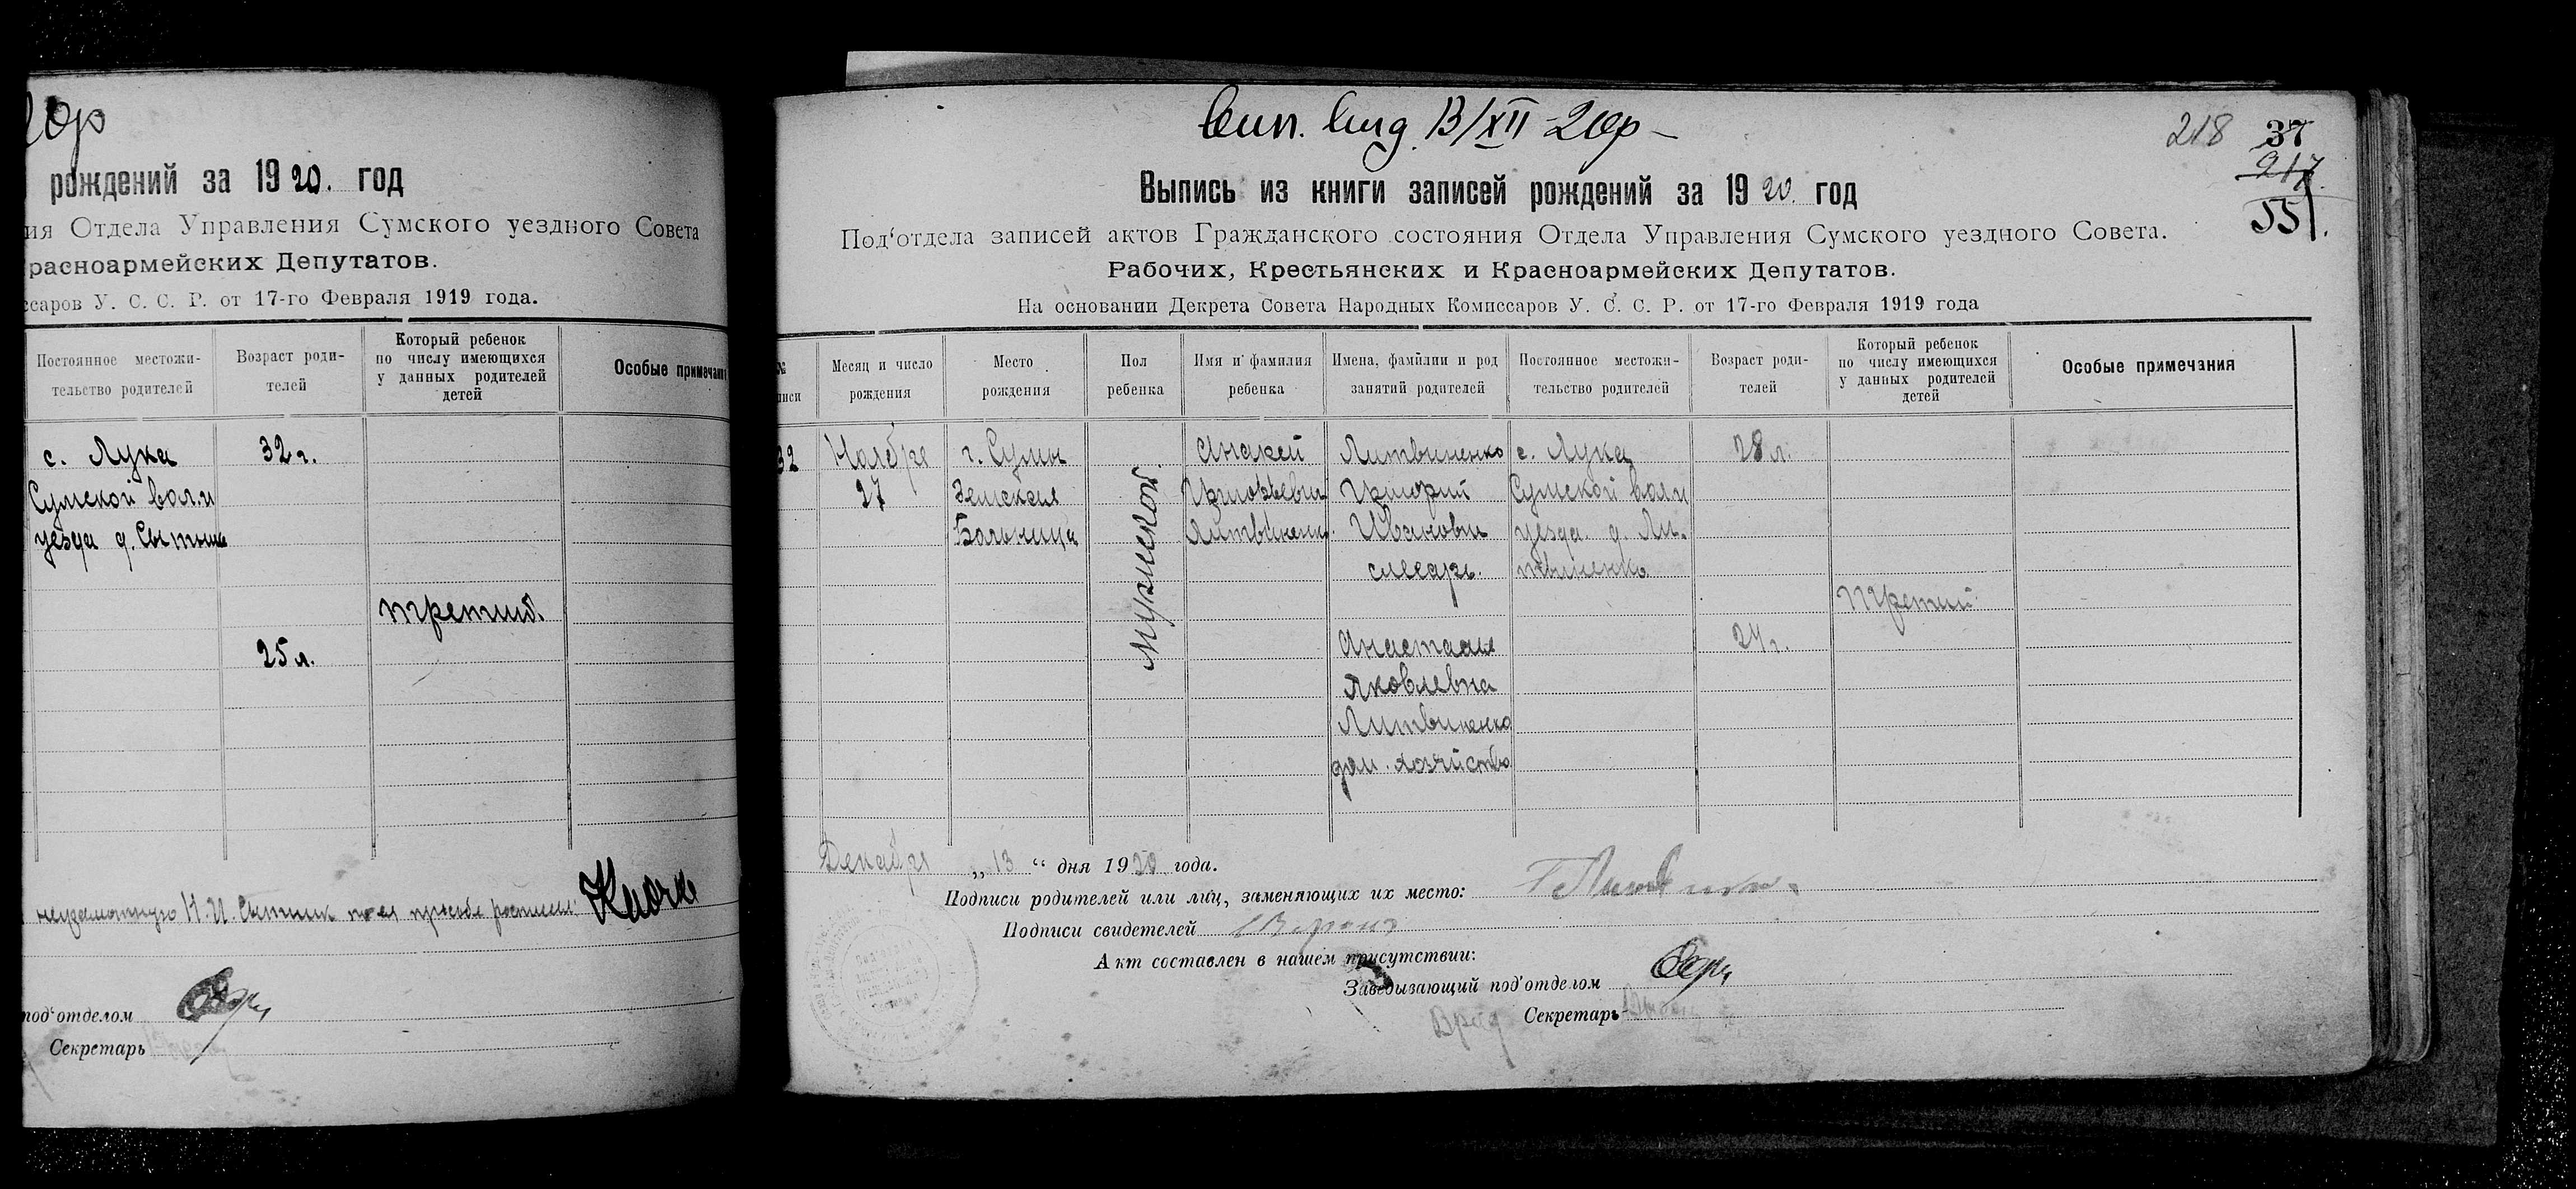 20р
рождений за 1920. год
ия Отдела Управления Сумского уездного Совета
расноармейских Депутатов.
ссаров У. С. С. Р. от 17-го Февраля 1919 года.
Постоянное местожи-
тельство родителей
Возраст роди-
телей
Который ребенок
по числу имеющихся
у данных родителей
детей
Особые примечани
с. Лука
Сумской вол. и
уезда д. Сытник
32 г.
третий.
25 л.
неграмотную Н. И. Сытник по ея просьбе
под'отделом
Секретарь
13/XII 20р
218
37
217
55
Выпись из книги записей рождений за 1920. год
Под'отдела записей актов Гражданского состояния Отдела Управления Сумского уездного Совета.
Рабочих, Крестьянских и Красноармейских Депутатов.
На основании Декрета Совета Народных Комиссаров У. С. С. Р. от 17-го Февраля 1919 года
№
писи
Месяц и число
рождения
Место
рождения
Пол
ребенка
Имя и фамилия
ребенка
Имена, фамилии и род
занятий родителей
Постоянное местожи-
тельство родителей
Возраст роди-
телей
Который ребенок
по числу имеющихся
у данных родителей
детей
Особые примечания
32
Ноября
27
г. Сумы
Земская
Больница
Мужской.
Андрей
Григорьевич
Литвиненко.
Литвиненко
Григорий
Иванович
слесарь.
Анастасия
Яковлевна
Литвиненко
дом. хозяйство
с. Лука
Сумской вол. и
уезда. д. Ли-
твиненко
28 л.
24 г.
Третий
Декабря „ 13 “ дня 1920 года.
Подписи родителей или лиц, заменяющих их место:
Подписи свидетелей
Акт составлен в нашем присутствии:
Заведывающий под'отделом
Врид Секретарь